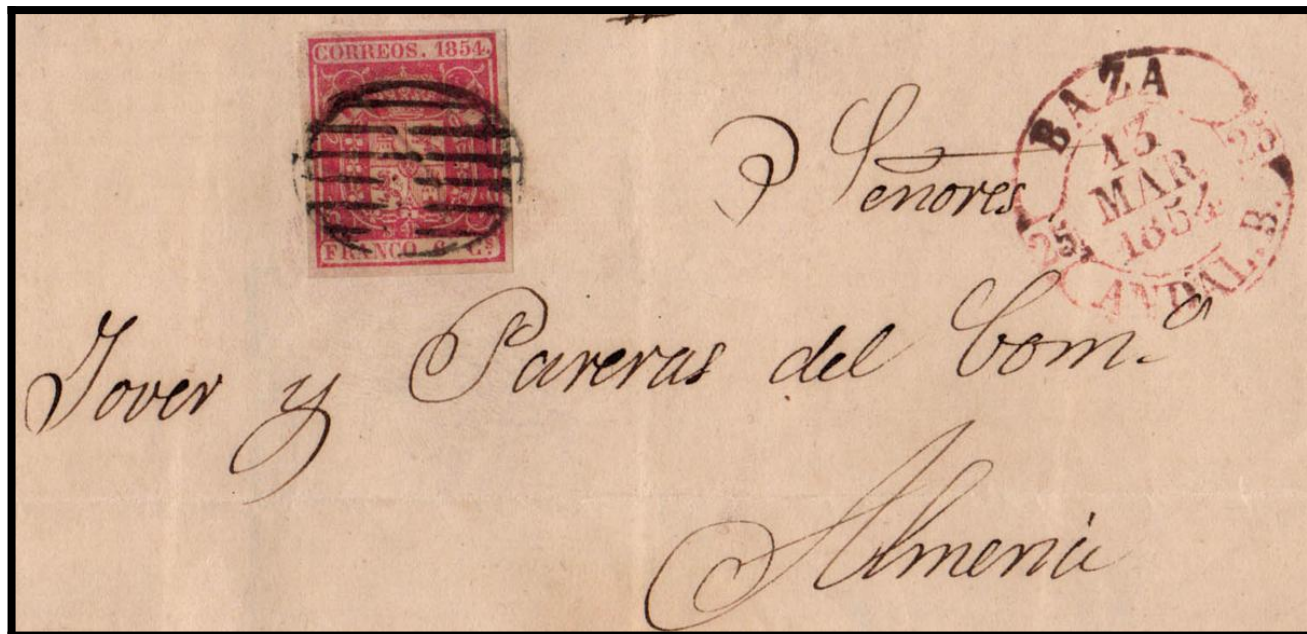 CORREOS. 1854.
FRANCO 6 Cs
BAZA
25
13
MAR
1854
25
ANDAL. B.
Señores
Jover y Pareras del Coma
Almeria